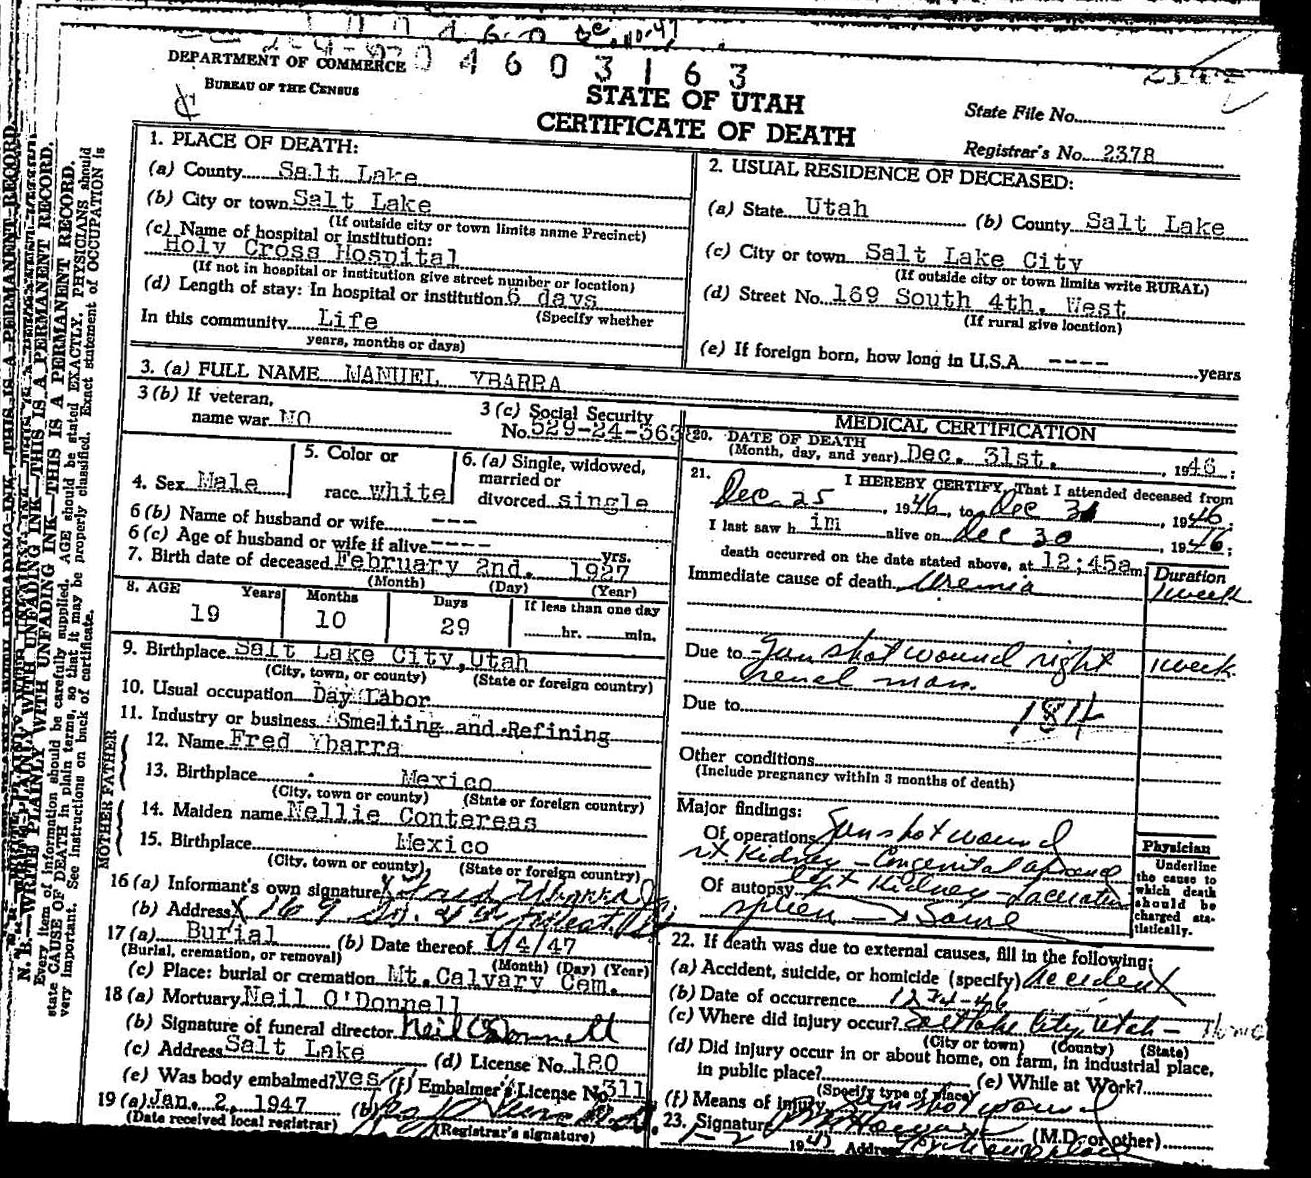 0 4 6 0 3 1 6 3
DEPARTMENT OF COMMERCE
BUREAU OF THE CENSUS
STATE OF UTAH
CERTIFICATE OF DEATH
State File No.
Registrar's No. 2378
N. B.—WRITE PLAINLY WITH UNFADING INK—THIS IS A PERMANENT RECORD.
Every item of information should be carefully supplied. AGE should be stated EXACTLY. PHYSICIANS should
state CAUSE OF DEATH in plain terms, so that it may be properly classified. Exact statement of OCCUPATION is
very important. See instructions on back of certificate.
1. PLACE OF DEATH:
(a) County Salt Lake
(b) City or town Salt Lake
(If outside city or town limits name Precinct)
(c) Name of hospital or institution:
Holy Cross Hospital
(If not in hospital or institution give street number or location)
(d) Length of stay: In hospital or institution 6 days
(Specify whether
In this community Life
years, months or days)
2. USUAL RESIDENCE OF DECEASED:
(a) State Utah (b) County Salt Lake
(c) City or town Salt Lake City
(If outside city or town limits write RURAL)
(d) Street No. 169 South 4th. West
(If rural give location)
(e) If foreign born, how long in U.S.A. ---- years
3. (a) FULL NAME MANUEL YBARRA
3 (b) If veteran,
name war NO
3 (c) Social Security
No. 529-24-363
4. Sex Male
5. Color or
race white
6. (a) Single, widowed,
married or
divorced single
6 (b) Name of husband or wife ---
6 (c) Age of husband or wife if alive ---- yrs.
7. Birth date of deceased February 2nd. 1927
(Month) (Day) (Year)
8. AGE Years Months Days If less than one day
19 10 29 hr. min.
9. Birthplace Salt Lake City, Utah
(City, town, or county) (State or foreign country)
10. Usual occupation Day Labor
11. Industry or business Smelting and Refining
FATHER
12. Name Fred Ybarra
13. Birthplace Mexico
(City, town or county) (State or foreign country)
MOTHER
14. Maiden name Nellie Contereas
15. Birthplace Mexico
(City, town or county) (State or foreign country)
16 (a) Informant's own signature X Fred Ybarra
(b) Address X 169 So. 4th West
17 (a) Burial (b) Date thereof 1/4/47
(Burial, cremation, or removal) (Month) (Day) (Year)
(c) Place: burial or cremation Mt. Calvary Cem.
18 (a) Mortuary Neil O'Donnell
(b) Signature of funeral director Neil O'Donnell
(c) Address Salt Lake (d) License No. 180
(e) Was body embalmed? yes (f) Embalmer's License No 311
19 (a) Jan. 2, 1947 (b)
(Date received local registrar) (Registrar's signature)
MEDICAL CERTIFICATION
20. DATE OF DEATH
(Month, day, and year) Dec. 31st. , 1946 ;
21. I HEREBY CERTIFY, That I attended deceased from
Dec 25 , 1946, to Dec 31 , 1946;
I last saw him alive on Dec 30 , 1946;
death occurred on the date stated above, at 12;45am.
Duration
Immediate cause of death Uremia 1 week
Due to Gunshot wound right 1 week
renal
Due to
Other conditions
(Include pregnancy within 3 months of death)
Major findings:
Of operations Gunshot wound
rt Kidney - Congenital absence
Of autopsy left Kidney - Laceration
spleen - Same
Physician
Underline
the cause to
which death
should be
charged sta-
tistically.
22. If death was due to external causes, fill in the following:
(a) Accident, suicide, or homicide (specify) Accident
(b) Date of occurrence 12-24-46
(c) Where did injury occur? Salt Lake City, Utah - Home
(City or town) (County) (State)
(d) Did injury occur in or about home, on farm, in industrial place,
in public place? (e) While at Work?
(Specify type of place)
(f) Means of injury Gunshot wound
23. Signature (M.D. or other)
1-2 1947 Address